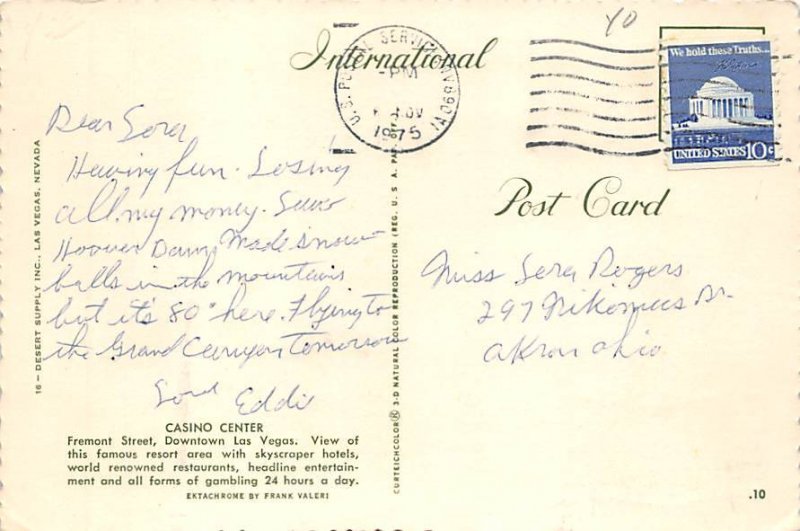 International
U.S. POSTAL SERVICE
PM
NOV
1975
We hold these Truths...
UNITED STATES 10c
Dear Sera
Having fun. Losing
all my money. Saw
Hoover Dam, Made snow
balls in the mountains
but it's 80° here. Flying to
the Grand Canyon tomorrow
Love Eddie
Post Card
Miss Sera Rogers
297 Nikomus Dr.
Akron Ohio
CASINO CENTER
Fremont Street, Downtown Las Vegas. View of
this famous resort area with skyscraper hotels,
world renowned restaurants, headline entertain-
ment and all forms of gambling 24 hours a day.
EKTACHROME BY FRANK VALERI
16 — DESERT SUPPLY INC., LAS VEGAS, NEVADA
CURTEICHCOLOR® 3-D NATURAL COLOR REPRODUCTION (REG. U. S. A. PAT. OFF.)
.10